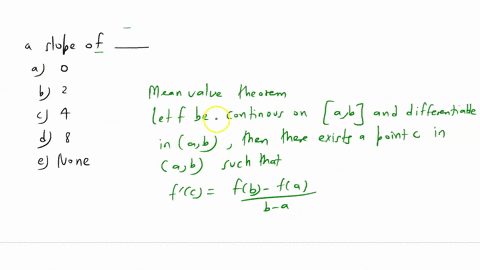 a slope of ____
a) 0
b) 2
c) 4
d) 8
e) None
Mean value theorem
let f be . continous on [a,b] and differentiable
in (a,b), then there exists a point c in
(a,b) such that
f'(c) = f(b) - f(a)
b-a